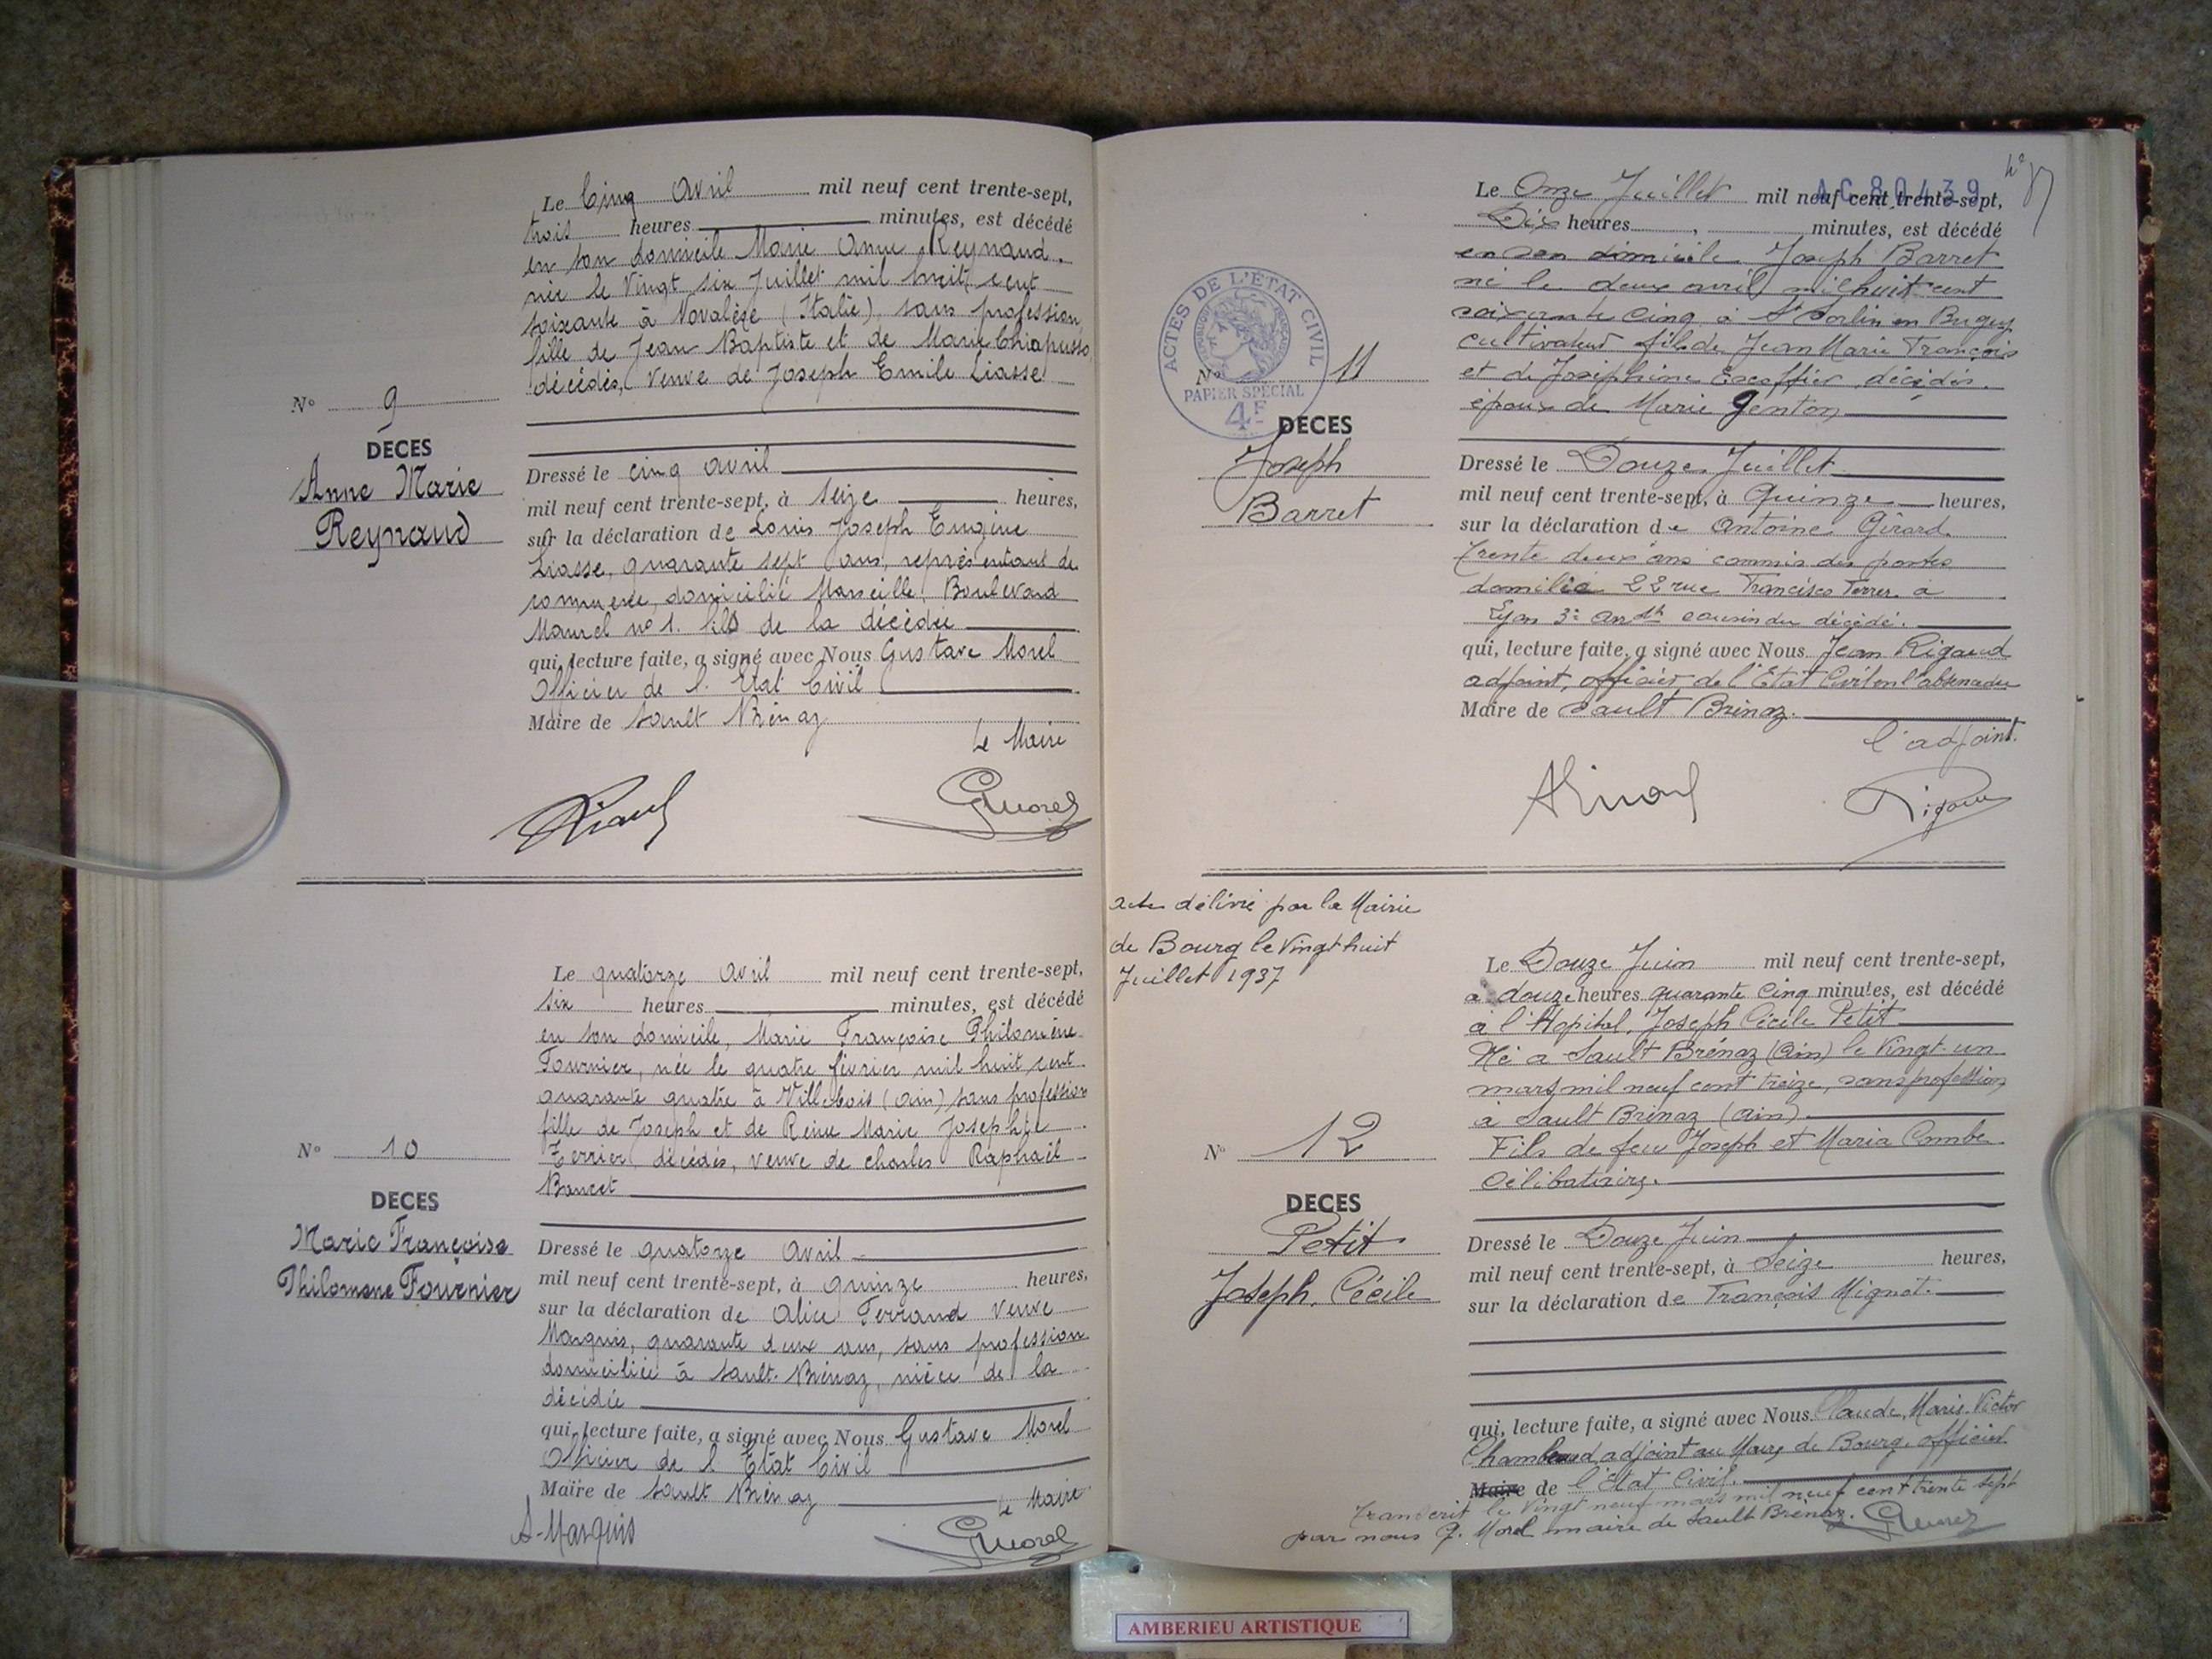 Le Cinq Avril mil neuf cent trente-sept,
trois heures minutes, est décédé
en son domicile Marie Anne Reynaud.
née le Vingt six Juillet mil huit cent
soixante à Novalèse (Italie), sans profession,
fille de Jean Baptiste et de Marie Chiapusso
décédés, Veuve de Joseph Emile Liasse
N° 9
DECES
Anne Marie
Reynaud
Dressé le cinq avril
mil neuf cent trente-sept, à Seize heures,
sur la déclaration de Louis Joseph Eugène
Liasse, quarante sept ans, représentant de
commerce, domicilié Marseille, Boulevard
Maurel n° 1. fils de la décédée
qui, lecture faite, a signé avec Nous Gustave Morel
Officier de l'Etat Civil
Maire de Sault Brénaz
Le Maire
GMorel
Le quatorze Avril mil neuf cent trente-sept,
six heures minutes, est décédé
en son domicile, Marie Françoise Philomène
Fournier, née le quatre février mil huit cent
quarante quatre à Villebois (ain) sans profession
fille de Joseph et de Reine Marie Josephte
Ferrier, décédés, veuve de Charles Raphaël
N° 10
DECES
Marie Françoise
Philomene Fournier
Dressé le quatorze Avril
mil neuf cent trente-sept, à quinze heures,
sur la déclaration de Alice Ferrand veuve
Marquis, quarante deux ans, sans profession
domiciliée à Sault-Brénaz, nièce de la
décédée
qui, lecture faite, a signé avec Nous Gustave Morel
Officier de l'Etat Civil
Maire de Sault Brénaz
Le Maire
A-Marquis
GMorel
AC 80439
Le Onze Juillet mil neuf cent trente-sept,
Dix heures minutes, est décédé
en son domicile Joseph Barret
né le deux avril mil huit cent
soixante Cinq à St Sorlin en Bugey
cultivateur fils de Jean Marie François
et de Joséphine Escoffier, décédés.
époux de Marie Genton
ACTES DE L'ETAT CIVIL
REPUBLIQUE FRANÇAISE
PAPIER SPECIAL
4F
N° 11
DECES
Joseph
Barret
Dressé le Douze Juillet
mil neuf cent trente-sept, à Quinze heures,
sur la déclaration de Antoine Girard
trente deux ans commis des postes
domilié 22 rue Francisco Ferrer à
Lyon 3e Ardt cousin du décédé.
qui, lecture faite, a signé avec Nous Jean Rigaud
adjoint, officier de l'Etat Civil en l'absence du
Maire de Sault Brénaz.
l'adjoint.
Rigaud
acte délivré par la Mairie
de Bourg le Vingt huit
Juillet 1937
Le Douze Juin mil neuf cent trente-sept,
à douze heures quarante Cinq minutes, est décédé
à l'Hopital, Joseph Cécile Petit
Né à Sault Brénaz (Ain) le Vingt-un
mars mil neuf cent treize, sans profession
à Sault Brénaz (Ain).
Fils de feu Joseph et Maria Combe
Célibataire.
N° 12
DECES
Petit
Joseph, Cécile
Dressé le Douze Juin
mil neuf cent trente-sept, à Seize heures,
sur la déclaration de François Mignot.
qui, lecture faite, a signé avec Nous Claude, Marie, Victor
Chambaud adjoint au Maire de Bourg, officier
Maire de l'Etat Civil.
Transcrit le Vingt neuf mars mil neuf cent trente sept
par nous G. Morel maire de Sault Brénaz. GMorel
AMBERIEU ARTISTIQUE